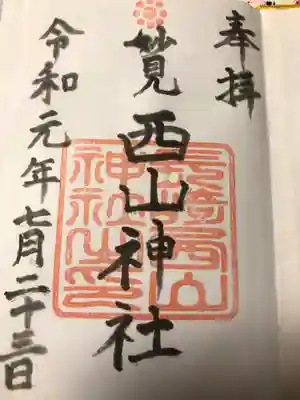 奉拝
妙見西山神社
長崎西山
神社之印
令和元年七月二十三日